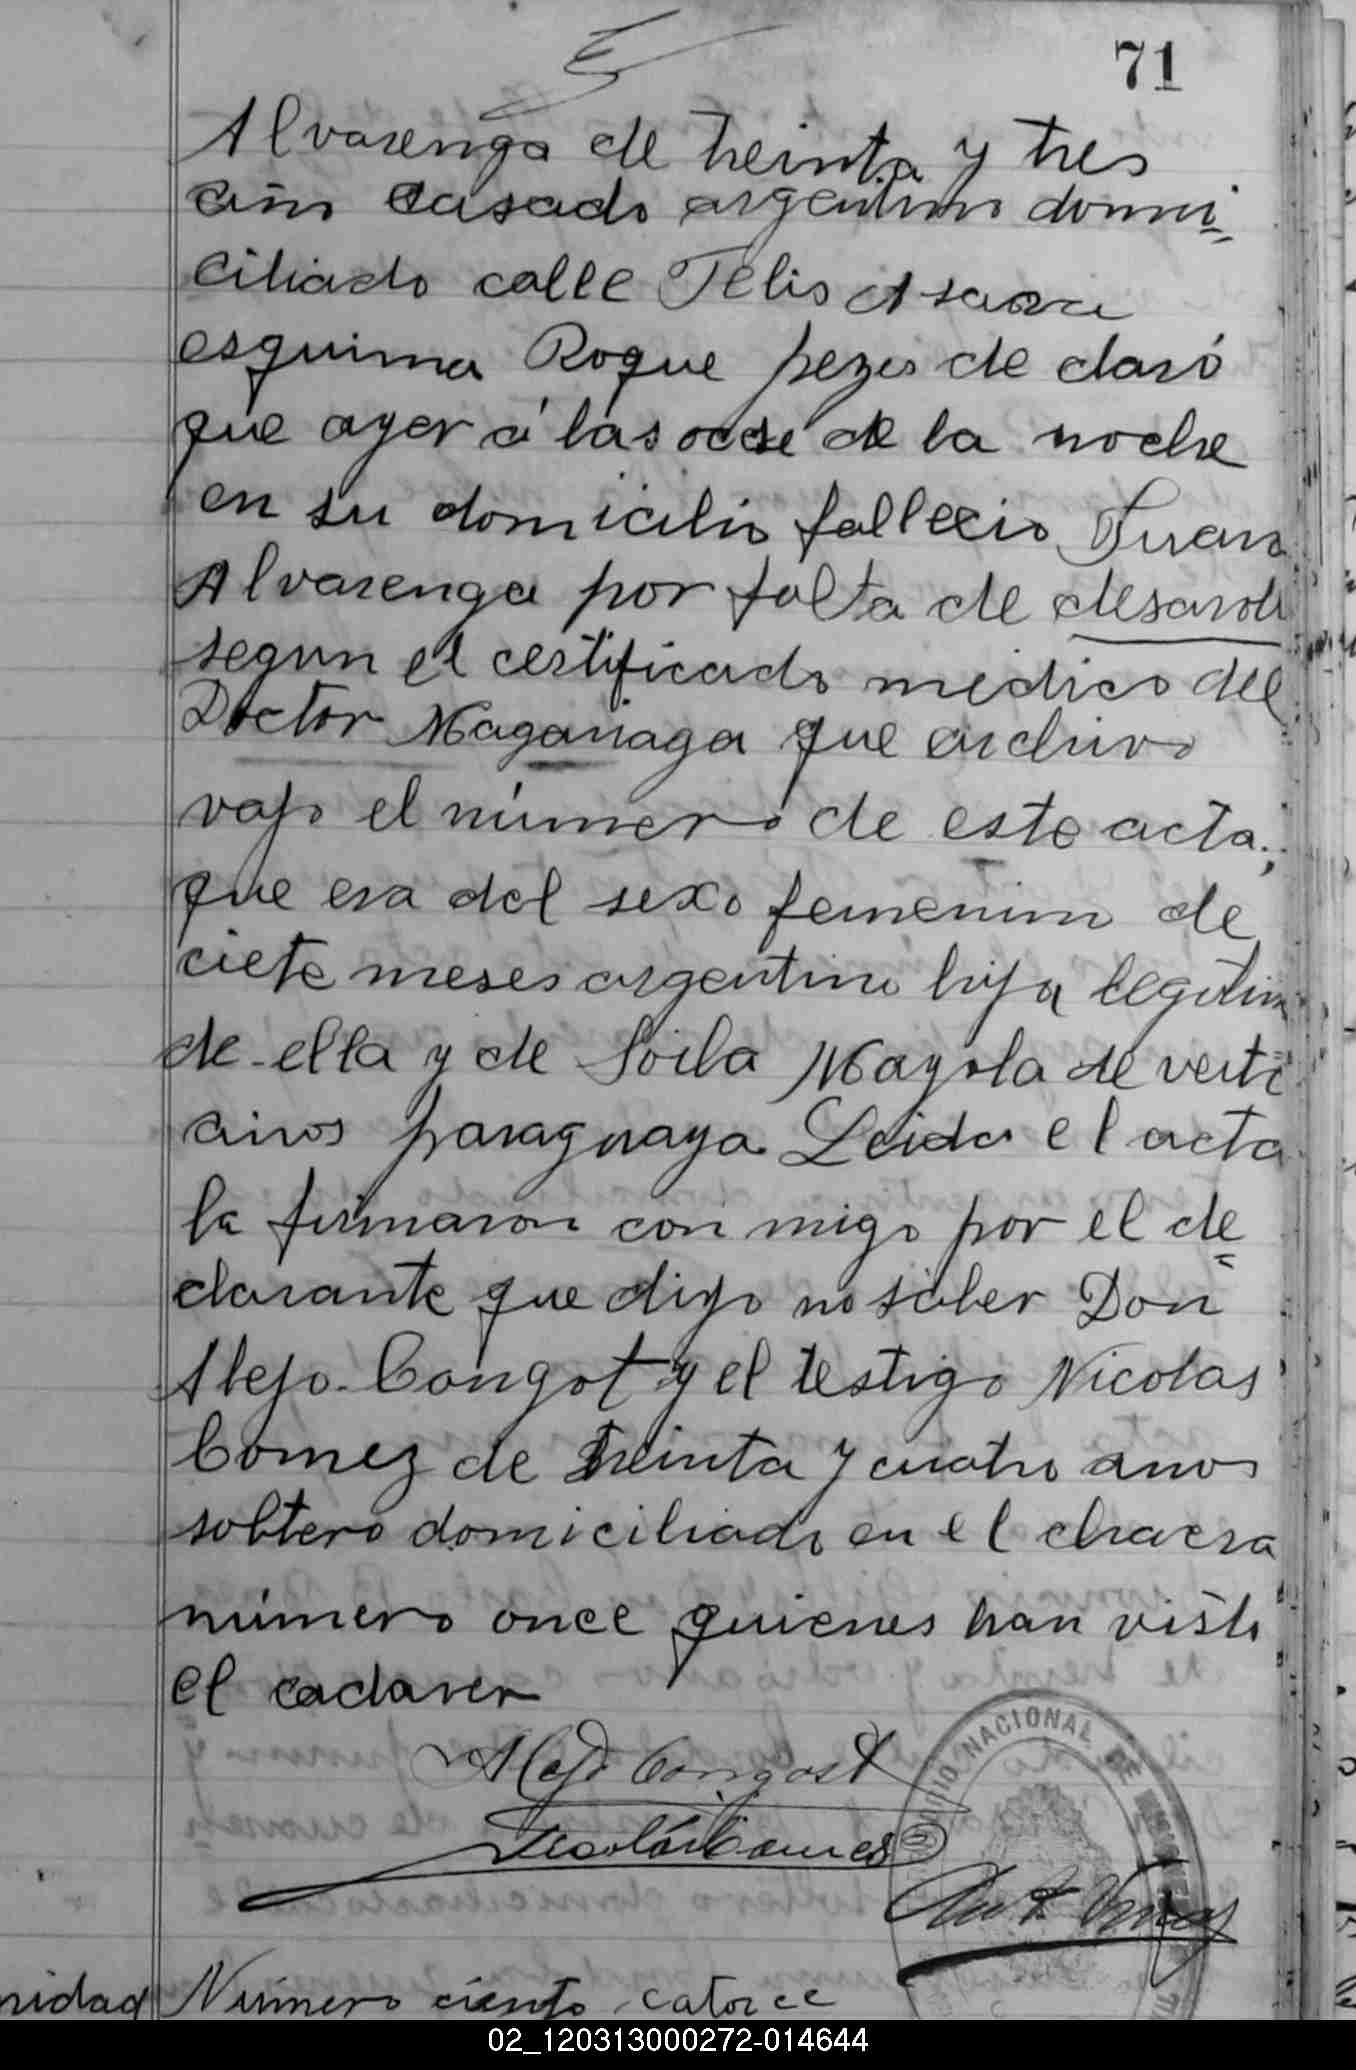 71
Alvarenga de treinta y tres
años casado argentino domi
ciliado calle Felis Asara
esquina Roque peres de claró
que ayer á las ocse de la noche
en su domicilio fallecio Juan
Alvarenga por falta de desaroll
segun el certificado médico del
Doctor Maganaga que archivo
vajo el número de este acta;
que era del sexo femenino de
ciete meses argentino hija legitim
de ella y de Soila Mayola de veite
años paraguaya Leida el acta
la firmaron con migo por el de
clarante que dijo no saber Don
Alejo Congot y el testigo Nicolas
Comez de treinta y cuatro anos
soltero domiciliado en el chacra
número once quienes han visto
el cadaver
Alejo Congost
Nicolás Comes
NACIONAL DE
nidad Número ciento catorce
02_120313000272-014644